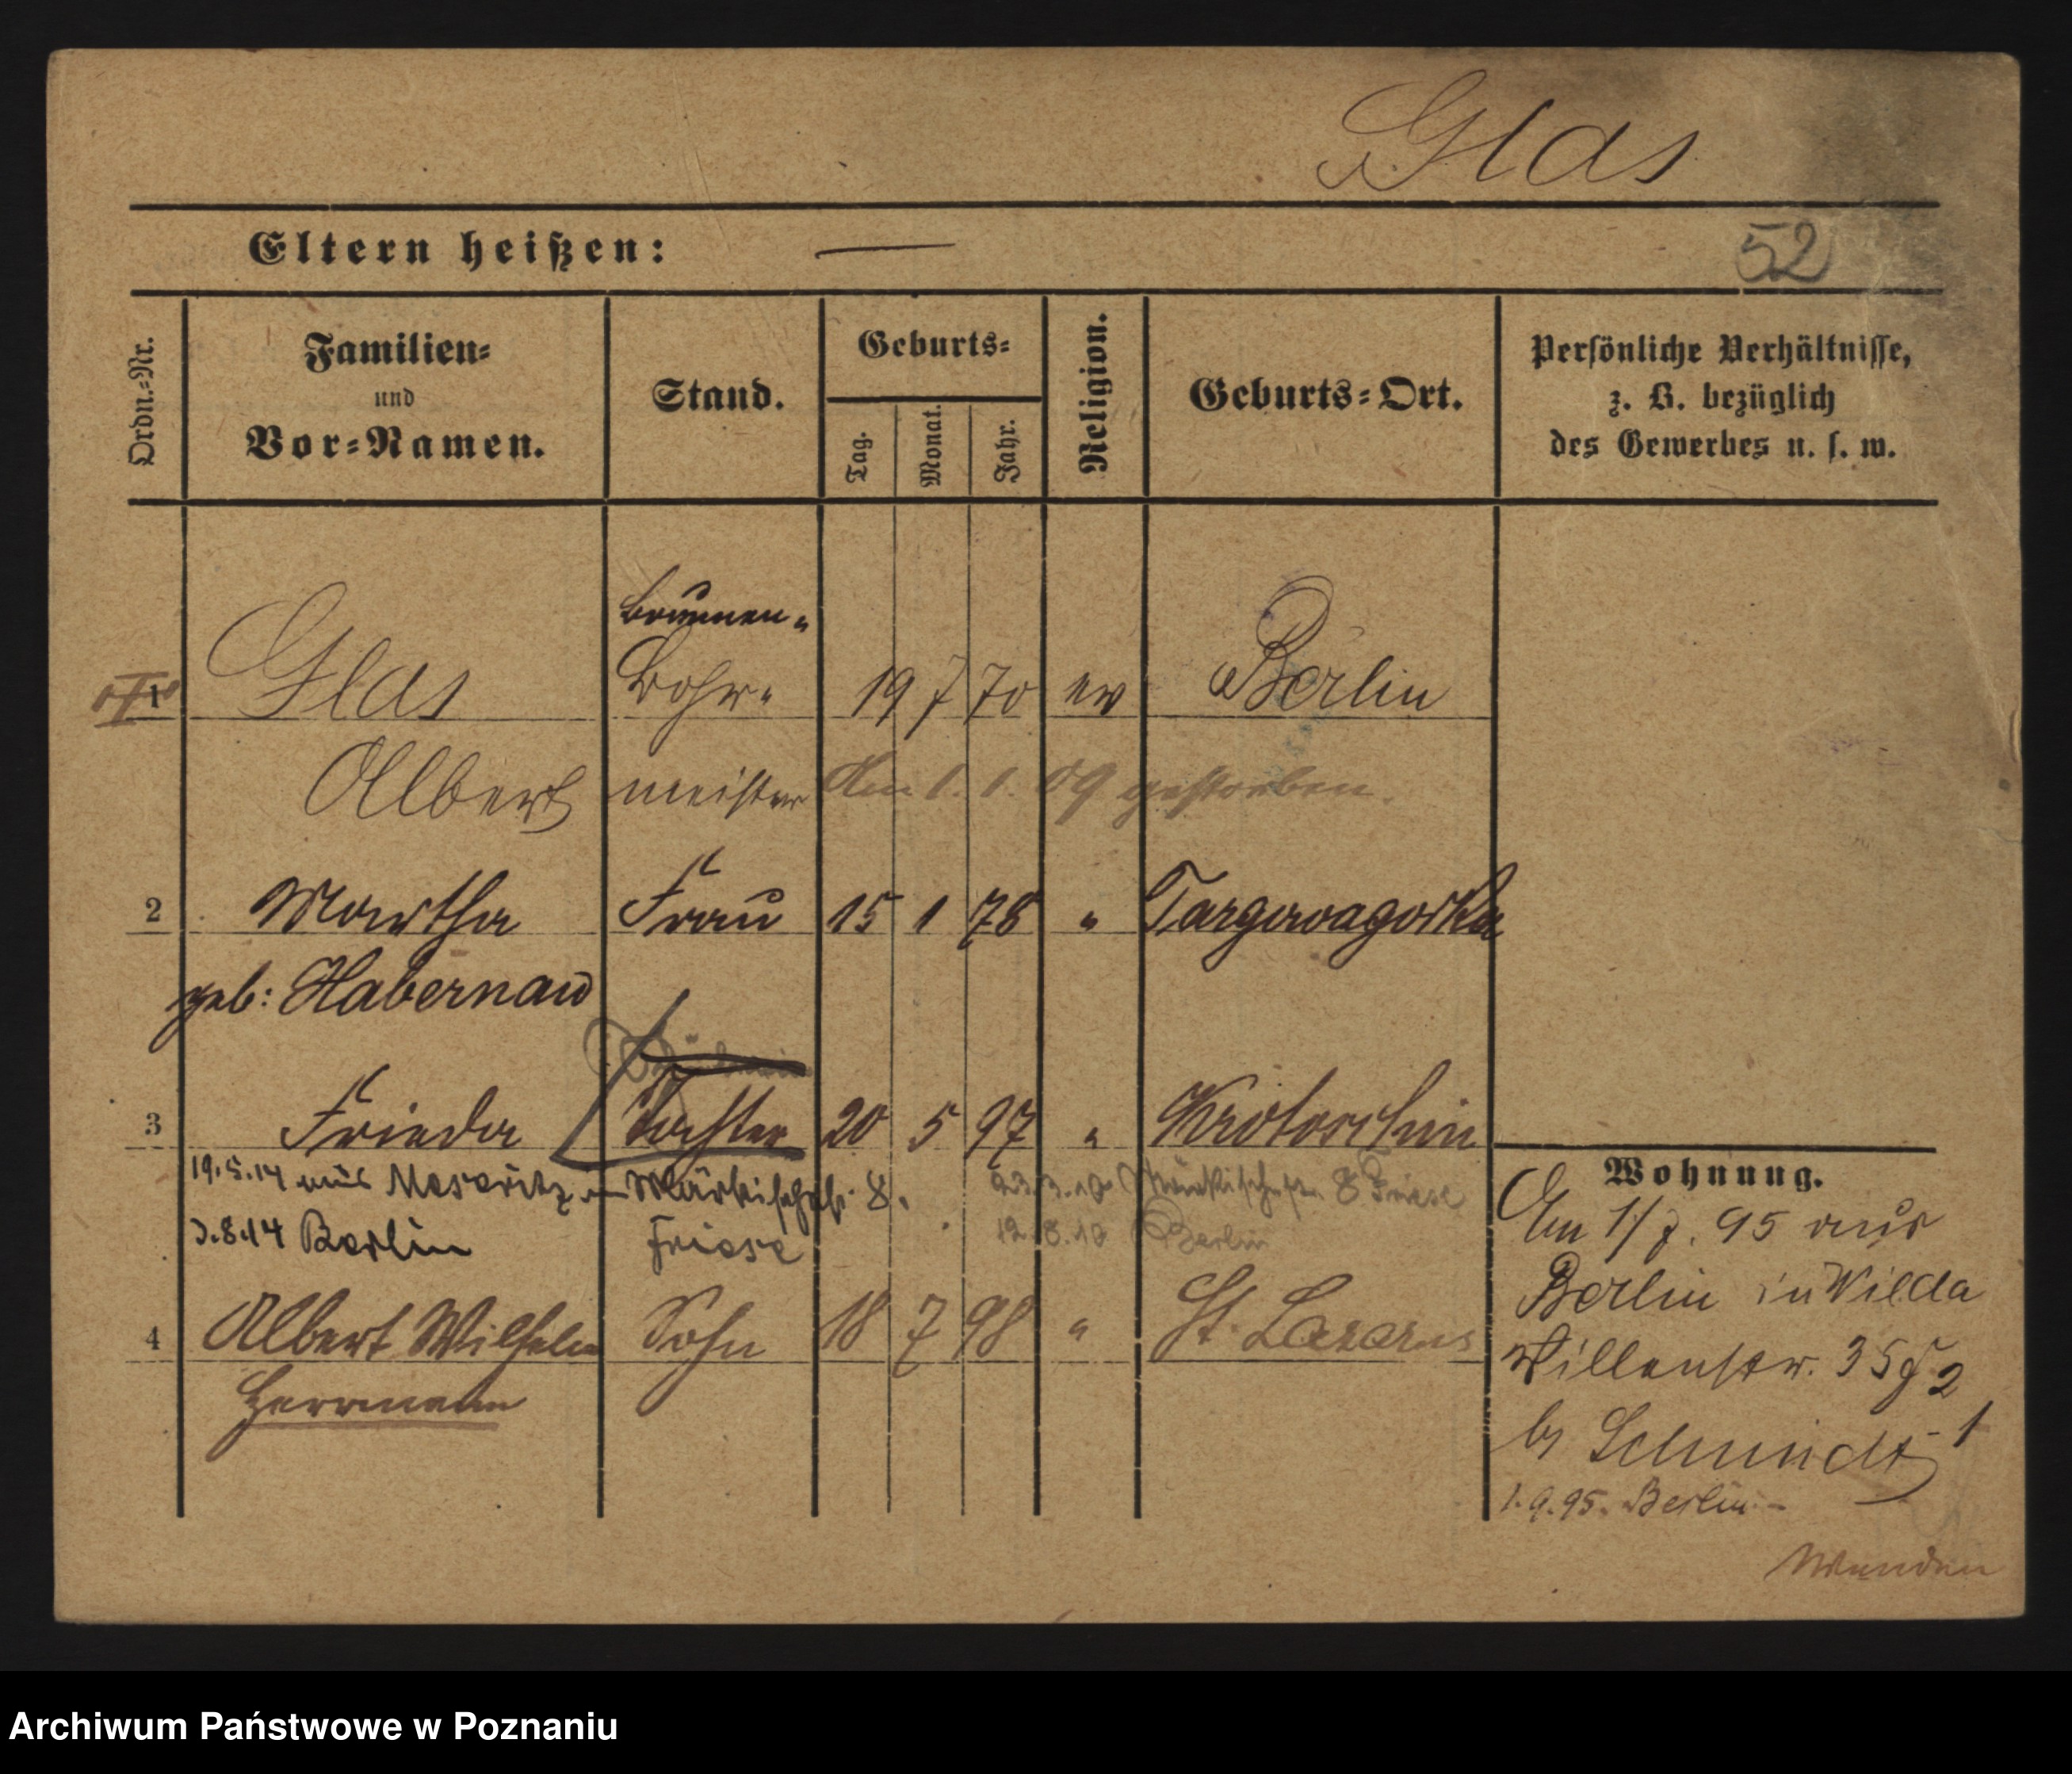 Glas
Eltern heißen: —
52
Ordn.=Nr.
Familien= und Vor=Namen.
Stand.
Geburts=
Tag.
Monat.
Jahr.
Religion.
Geburts=Ort.
Persönliche Verhältnisse,
z. B. bezüglich
des Gewerbes u. s. w.
Brunnen=
1 Glas Bohr= 19 7 70 ev Berlin
Albert meister Am 1. 1. 09 gestorben.
2 Martha Frau 15 1 78 " Targowagorka
geb: Habernau
3 Frieda Tochter 20 5 97 " Krotoschin
19.5.14 aus Meseritz Märkischestr. 8. 23.3.10 Märkischestr. 8 Friese
3.8.14 Berlin Friese 12.8.10 Berlin
4 Albert Wilhelm Sohn 18 7 98 " St. Lazarus
Herrmann
Wohnung.
Am 1/7. 95 aus
Berlin in Wilda
Villenstr. 35
b/ Schmidt
1.9.95. Berlin. –
Wenden
Archiwum Państwowe w Poznaniu